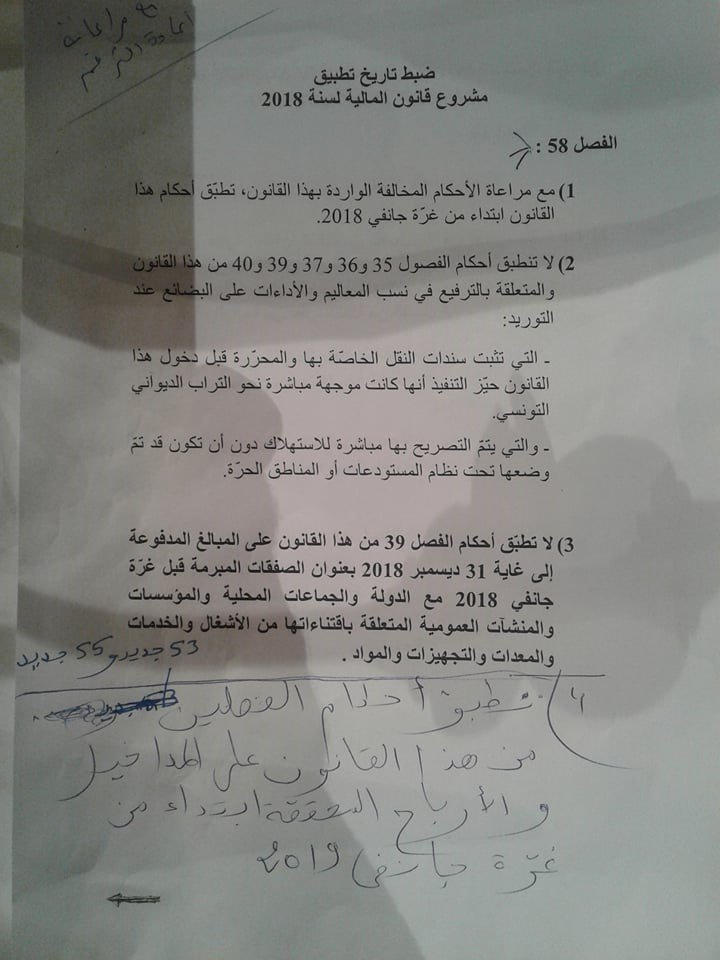 مع مراعاة
إعادة الترقيم
ضبط تاريخ تطبيق
مشروع قانون المالية لسنة 2018
الفصل 58 :
1) مع مراعاة الأحكام المخالفة الواردة بهذا القانون، تطبّق أحكام هذا
القانون ابتداء من غرّة جانفي 2018.
2) لا تنطبق أحكام الفصول 35 و36 و37 و39 و40 من هذا القانون
والمتعلقة بالترفيع في نسب المعاليم والأداءات على البضائع عند
التوريد:
ـ التي تثبت سندات النقل الخاصّة بها والمحرّرة قبل دخول هذا
القانون حيّز التنفيذ أنها كانت موجهة مباشرة نحو التراب الديواني
التونسي.
ـ والتي يتمّ التصريح بها مباشرة للاستهلاك دون أن تكون قد تمّ
وضعها تحت نظام المستودعات أو المناطق الحرّة.
3) لا تطبّق أحكام الفصل 39 من هذا القانون على المبالغ المدفوعة
إلى غاية 31 ديسمبر 2018 بعنوان الصفقات المبرمة قبل غرّة
جانفي 2018 مع الدولة والجماعات المحلية والمؤسسات
والمنشآت العمومية المتعلقة باقتناءاتها من الأشغال والخدمات
والمعدات والتجهيزات والمواد .
53 جديد و 55 جديد
4) تطبق أحكام الفصلين
من هذا القانون على المداخيل
والأرباح المحققة ابتداء من
غرّة جانفي 2019